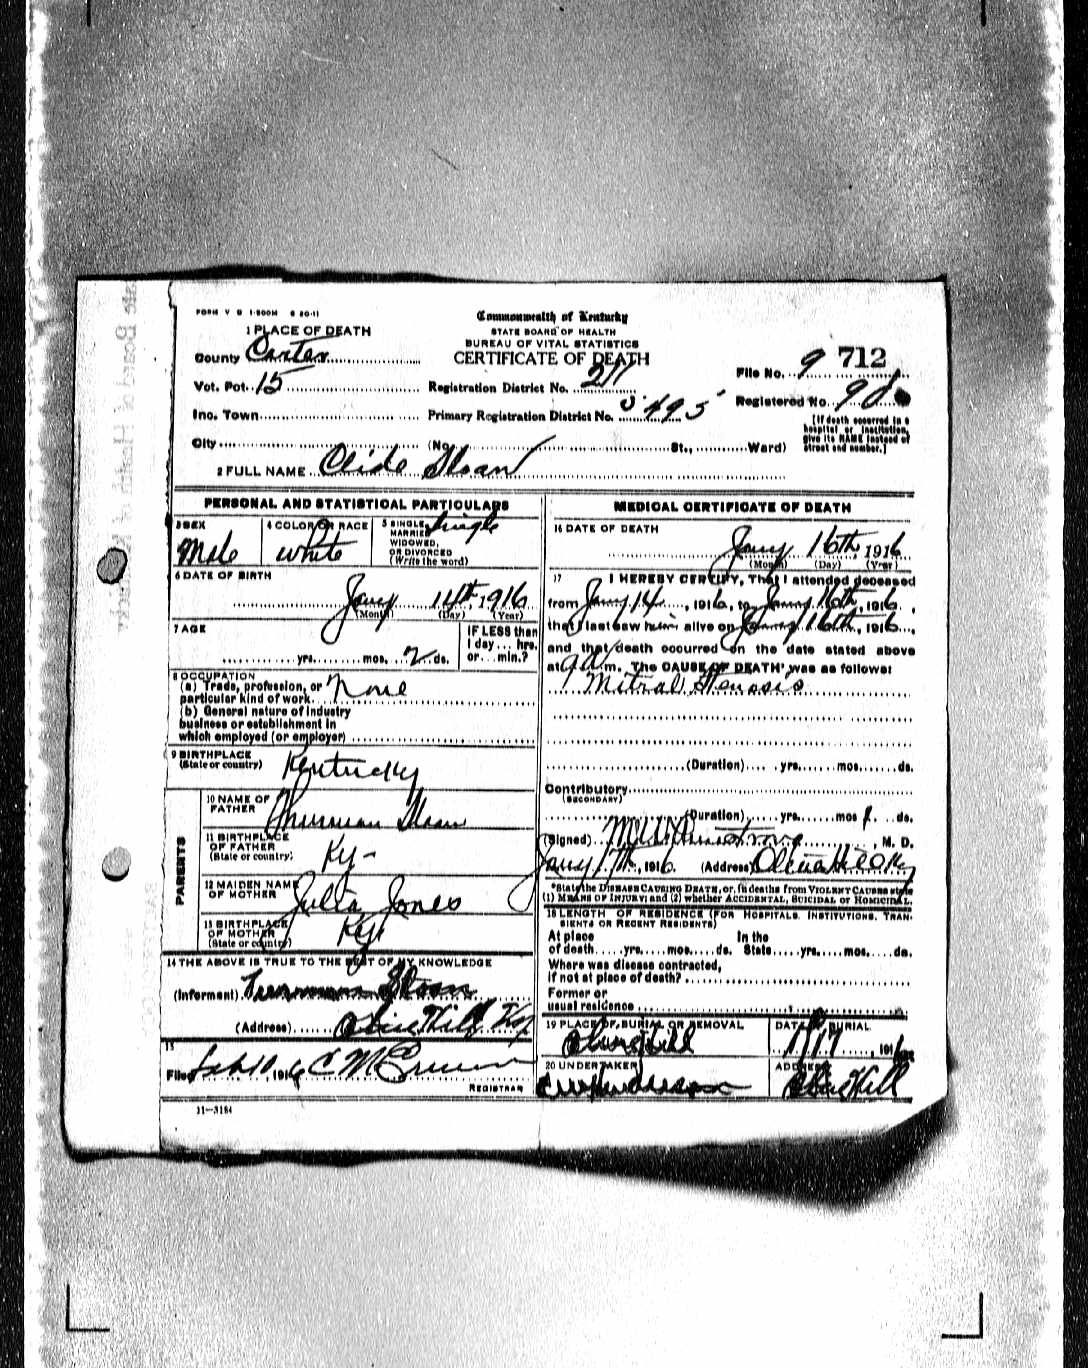 FORM V S 1-500M 6 20-11
Commonwealth of Kentucky
STATE BOARD OF HEALTH
BUREAU OF VITAL STATISTICS
CERTIFICATE OF DEATH
1 PLACE OF DEATH
County Carter
Vot. Pct. 15
Inc. Town
City (No. St., Ward)
Registration District No. 211
Primary Registration District No. 5495
File No. 9 712
Registered No. 98
[If death occurred in a hospital or institution, give its NAME instead of street and number.]
2 FULL NAME Clide Sloan
PERSONAL AND STATISTICAL PARTICULARS
3 SEX
Male
4 COLOR OR RACE
white
5 SINGLE, MARRIED, WIDOWED, OR DIVORCED (Write the word)
Single
6 DATE OF BIRTH
Jany 14th, 1916
(Month) (Day) (Year)
7 AGE
yrs. mos. 2 ds.
IF LESS than 1 day... hrs. or... min.?
8 OCCUPATION
(a) Trade, profession, or particular kind of work None
(b) General nature of industry business or establishment in which employed (or employer)
9 BIRTHPLACE
(State or country) Kentucky
PARENTS
10 NAME OF FATHER Thurman Sloan
11 BIRTHPLACE OF FATHER
(State or country) Ky-
12 MAIDEN NAME OF MOTHER Julia Jones
13 BIRTHPLACE OF MOTHER
(State or country) Ky.
14 THE ABOVE IS TRUE TO THE BEST OF MY KNOWLEDGE
(Informant) Sloan
(Address) Olive Hill Ky
15
Filed Feb 10, 1916 C M
REGISTRAR
11-3184
MEDICAL CERTIFICATE OF DEATH
16 DATE OF DEATH
Jany 16th 1916
(Month) (Day) (Year)
17 I HEREBY CERTIFY, That I attended deceased
from Jany 14, 1916, to Jany 16th, 1916,
that I last saw him alive on Jany 16th, 1916,
and that death occurred on the date stated above
at 9 a m. The CAUSE OF DEATH* was as follows:
Mitral Stenosis
(Duration) yrs. mos. ds.
Contributory
(SECONDARY)
(Duration) yrs. mos. ds.
(Signed) Armstrong, M. D.
Jany 17th, 1916 (Address) Olive Hill Ky
*State the DISEASE CAUSING DEATH, or, in deaths from VIOLENT CAUSES state
(1) MEANS OF INJURY; and (2) whether ACCIDENTAL, SUICIDAL OR HOMICIDAL.
18 LENGTH OF RESIDENCE (FOR HOSPITALS, INSTITUTIONS, TRANSIENTS OR RECENT RESIDENTS)
At place In the
of death yrs. mos. ds. State yrs. mos. ds.
Where was disease contracted,
if not at place of death?
Former or
usual residence
19 PLACE OF BURIAL OR REMOVAL
Olive Hill
DATE OF BURIAL
1/17, 1916
20 UNDERTAKER
ADDRESS
Olive Hill